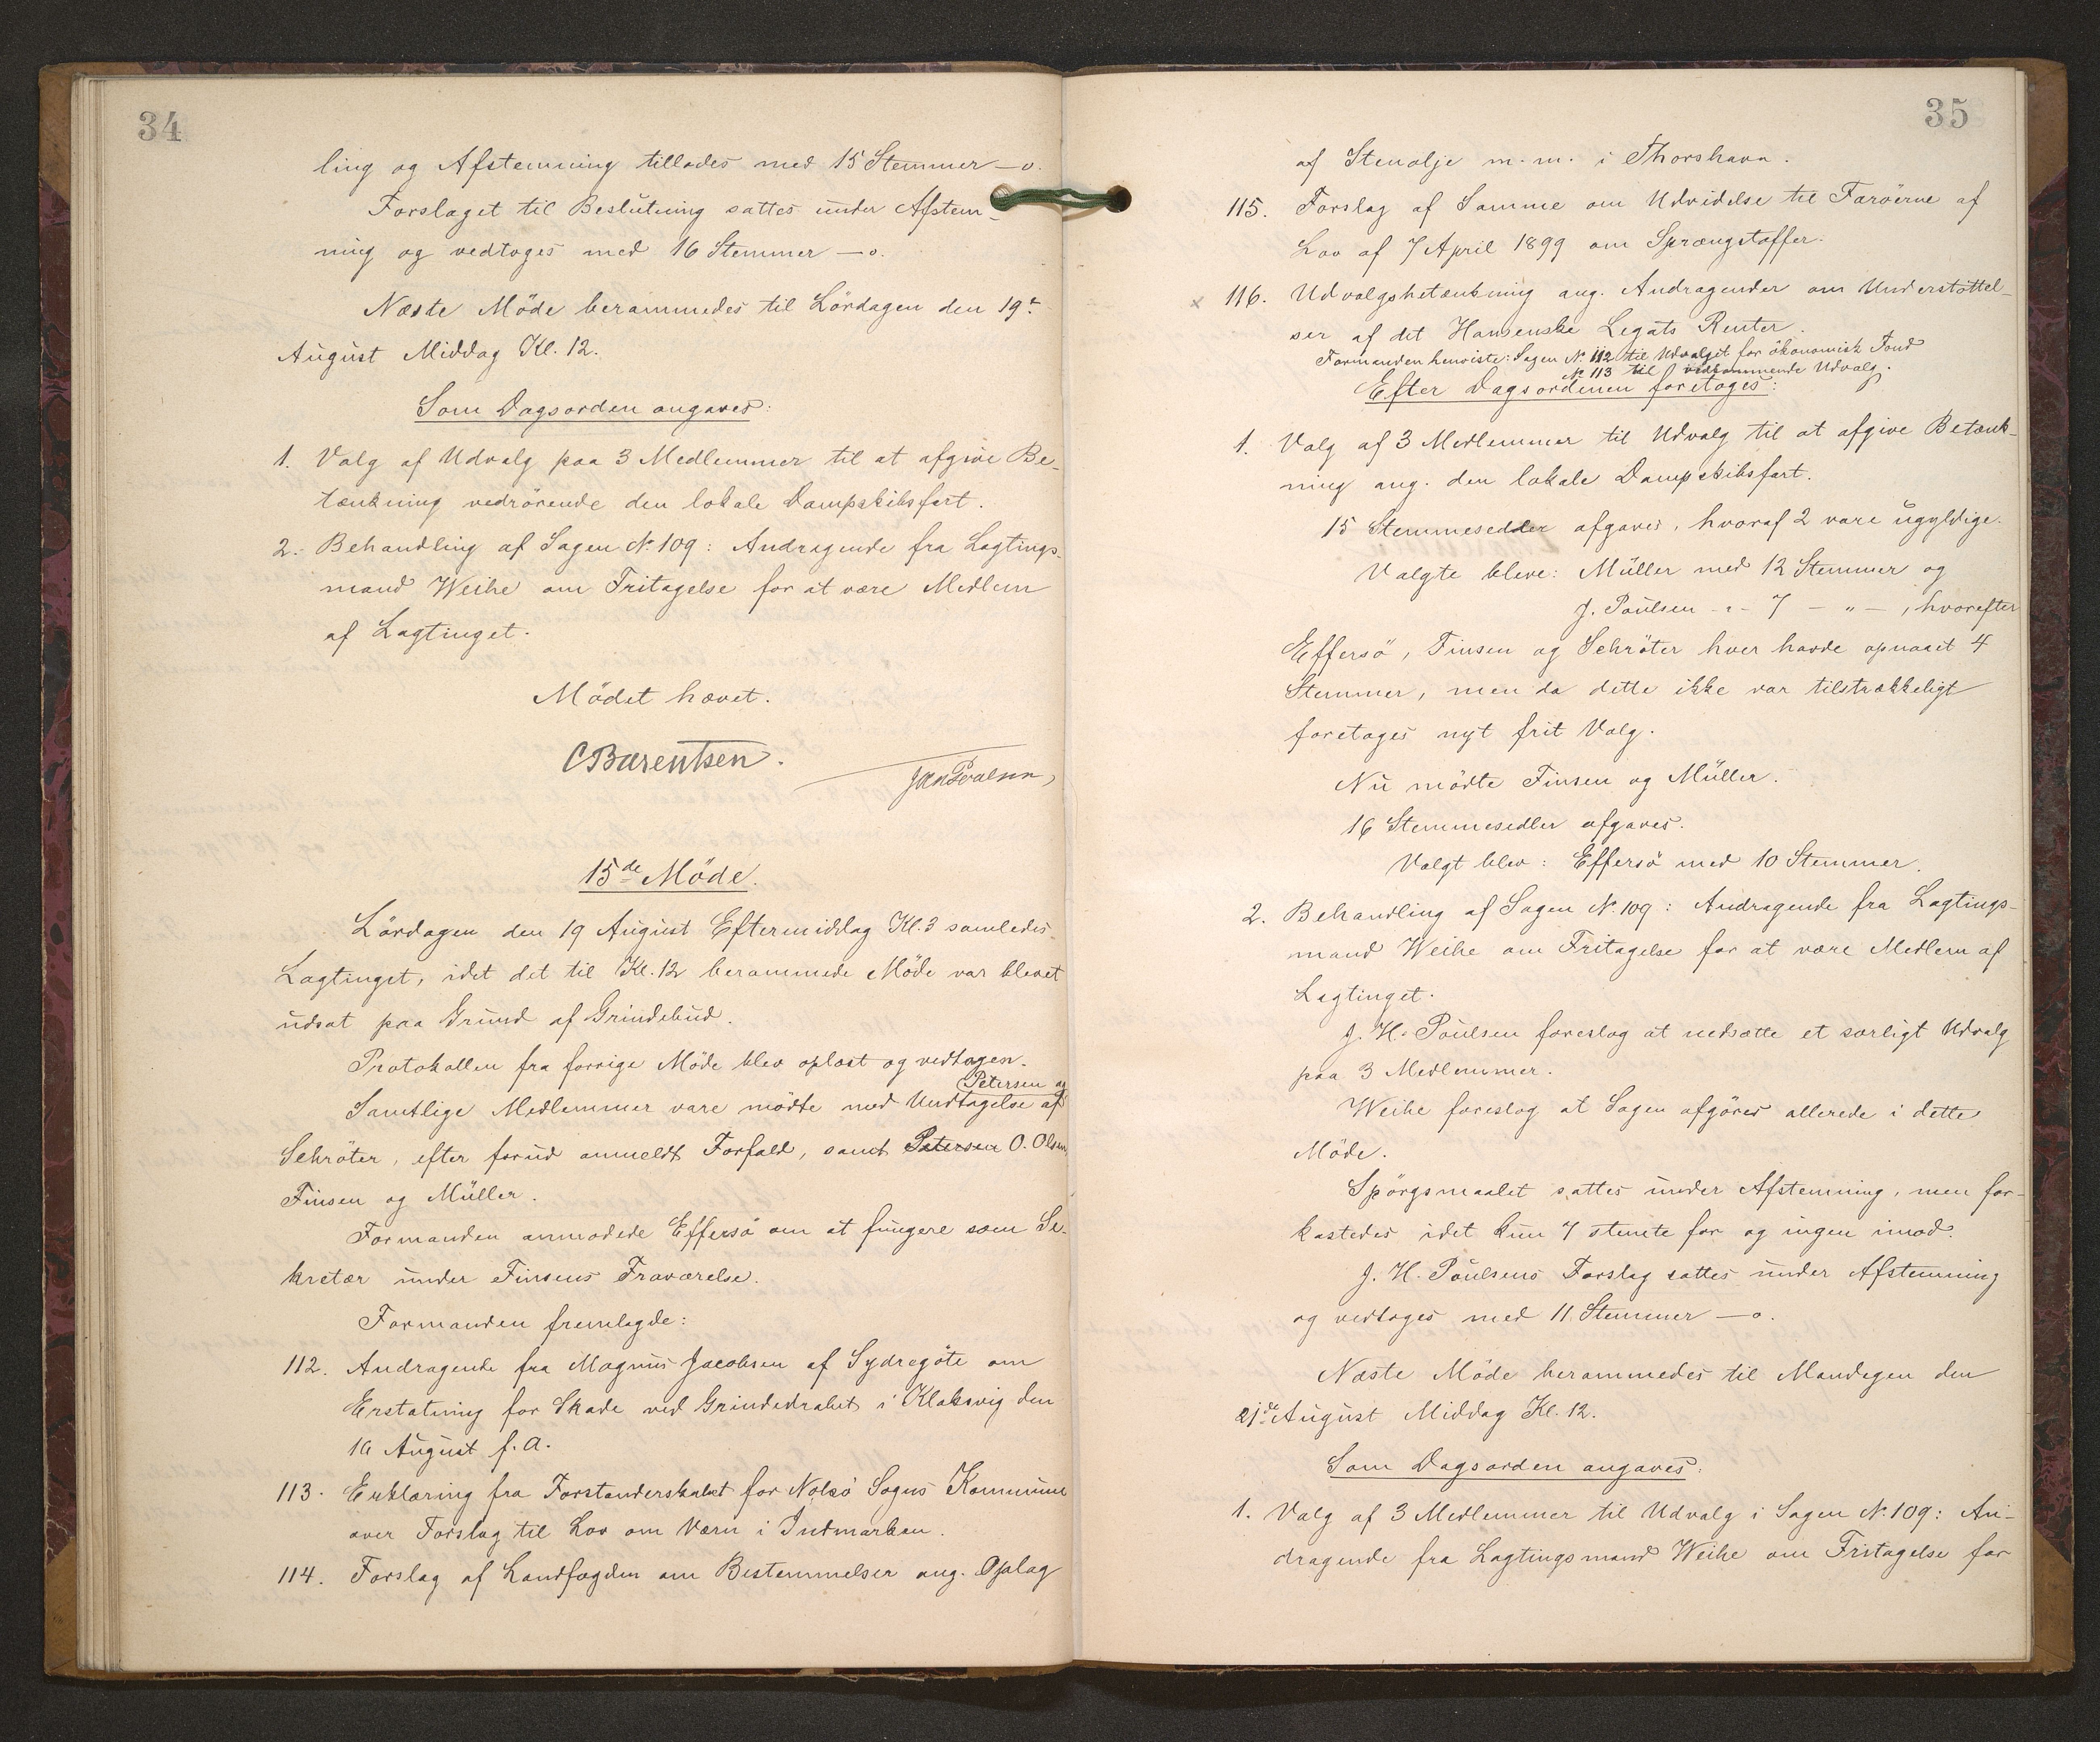 34
ling og Afstemning tillodes med 15 Stemmer — o.
Forslaget til Beslutning sattes under Afstem-
ning og vedtoges med 16 Stemmer — o.
Næste Möde berammedes til Lördagen den 19t
August Middag Kl. 12.
Som Dagsorden angaves:
1. Valg af Udvalg paa 3 Medlemmer til at afgive Be-
tænkning vedrörende den lokale Dampskibsfart.
2. Behandling af Sagen No. 109: Andragende fra Lagtings-
mand Weihe om Fritagelse for at være Medlem
af Lagtinget.
Mödet hævet.
CBærentsen.
15de Möde.
Lördagen den 19 August Eftermiddag Kl. 3 samledes
Lagtinget, idet det til Kl. 12 berammede Möde var blevet
udsat paa Grund af Grindebud.
Protokollen fra forrige Möde blev oplæst og vedtagen.
Petersen og
Samtlige Medlemmer vare mödte med Undtagelse af
Schröter, efter forud anmeldt Forfald, samt Petersen O. Olsen,
Finsen og Müller.
Formanden anmodede Effersö om at fungere som Se-
kretær under Finsens Fraværelse.
Formanden fremlagde:
112. Andragende fra Magnus Jacobsen af Sydregöte om
Erstatning for Skade ved Grindedrabet i Klaksvig den
10 August f. A.
113. Erklæring fra Forstanderskabet for Nolsö Sogns Kommune
over Forslag til Lov om Værn i Indmarken.
114. Forslag af Landfogden om Bestemmelser ang. Oplag
35
af Stenolje m. m. i Thorshavn.
115. Forslag af Samme om Udvidelse til Færöerne af
Lov af 7 April 1899 om Sprængstoffer.
x 116. Udvalgsbetænkning ang. Andragender om Understöttel-
ser af det Hansenske Legats Renter.
Formanden henviste: Sagen No. 112 til Udvalget for ökonomisk Fond
No 113 til vedkommende Udvalg.
Efter Dagsordenen foretoges:
1. Valg af 3 Medlemmer til Udvalg til at afgive Betænk-
ning ang. den lokale Dampskibsfart.
15 Stemmesedler afgaves, hvoraf 2 vare ugyldige.
Valgte bleve: Müller med 12 Stemmer og
J. Poulsen - " - 7 — " —, hvorefter
Effersö, Finsen og Schröter hver havde opnaaet 4
Stemmer, men da dette ikke var tilstrækkeligt
foretoges nyt frit Valg.
Nu mödte Finsen og Müller.
16 Stemmesedler afgaves.
Valgt blev: Effersö med 10 Stemmer.
2. Behandling af Sagen No. 109: Andragende fra Lagtings-
mand Weihe om Fritagelse for at være Medlem af
Lagtinget.
J. H. Poulsen foreslog at nedsætte et særligt Udvalg
paa 3 Medlemmer.
Weihe foreslog at Sagen afgöres allerede i dette
Möde.
Spörgsmaalet sattes under Afstemning, men for-
kastedes idet kun 7 stemte for og ingen imod.
J. H. Poulsens Forslag sattes under Afstemning
og vedtoges med 11 Stemmer — o.
Næste Möde berammedes til Mandagen den
21de August Middag Kl. 12.
Som Dagsorden angaves:
1. Valg af 3 Medlemmer til Udvalg i Sagen No. 109: An-
dragende fra Lagtingsmand Weihe om Fritagelse for